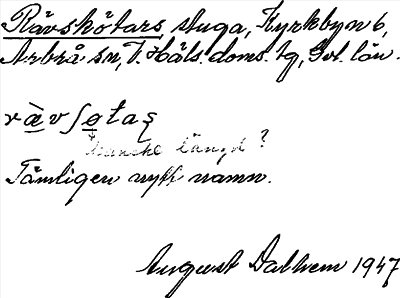 Rävskötars stuga, Kyrkbyn 6,
Arbrå sn, V. Häls. doms. tg, Gvl. län.
ræ̀vʃøtaʂ
Kanske längd?
Tämligen nytt namn.
August Dalhem 1947